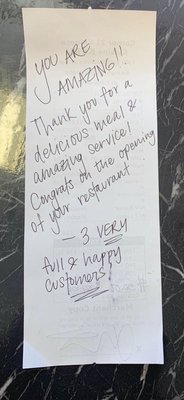 YOU ARE
AMAZING!!
Thank you for a
delicious meal &
amazing service!
Congrats on the opening
of your restaurant
- 3 VERY
full & happy
customers!